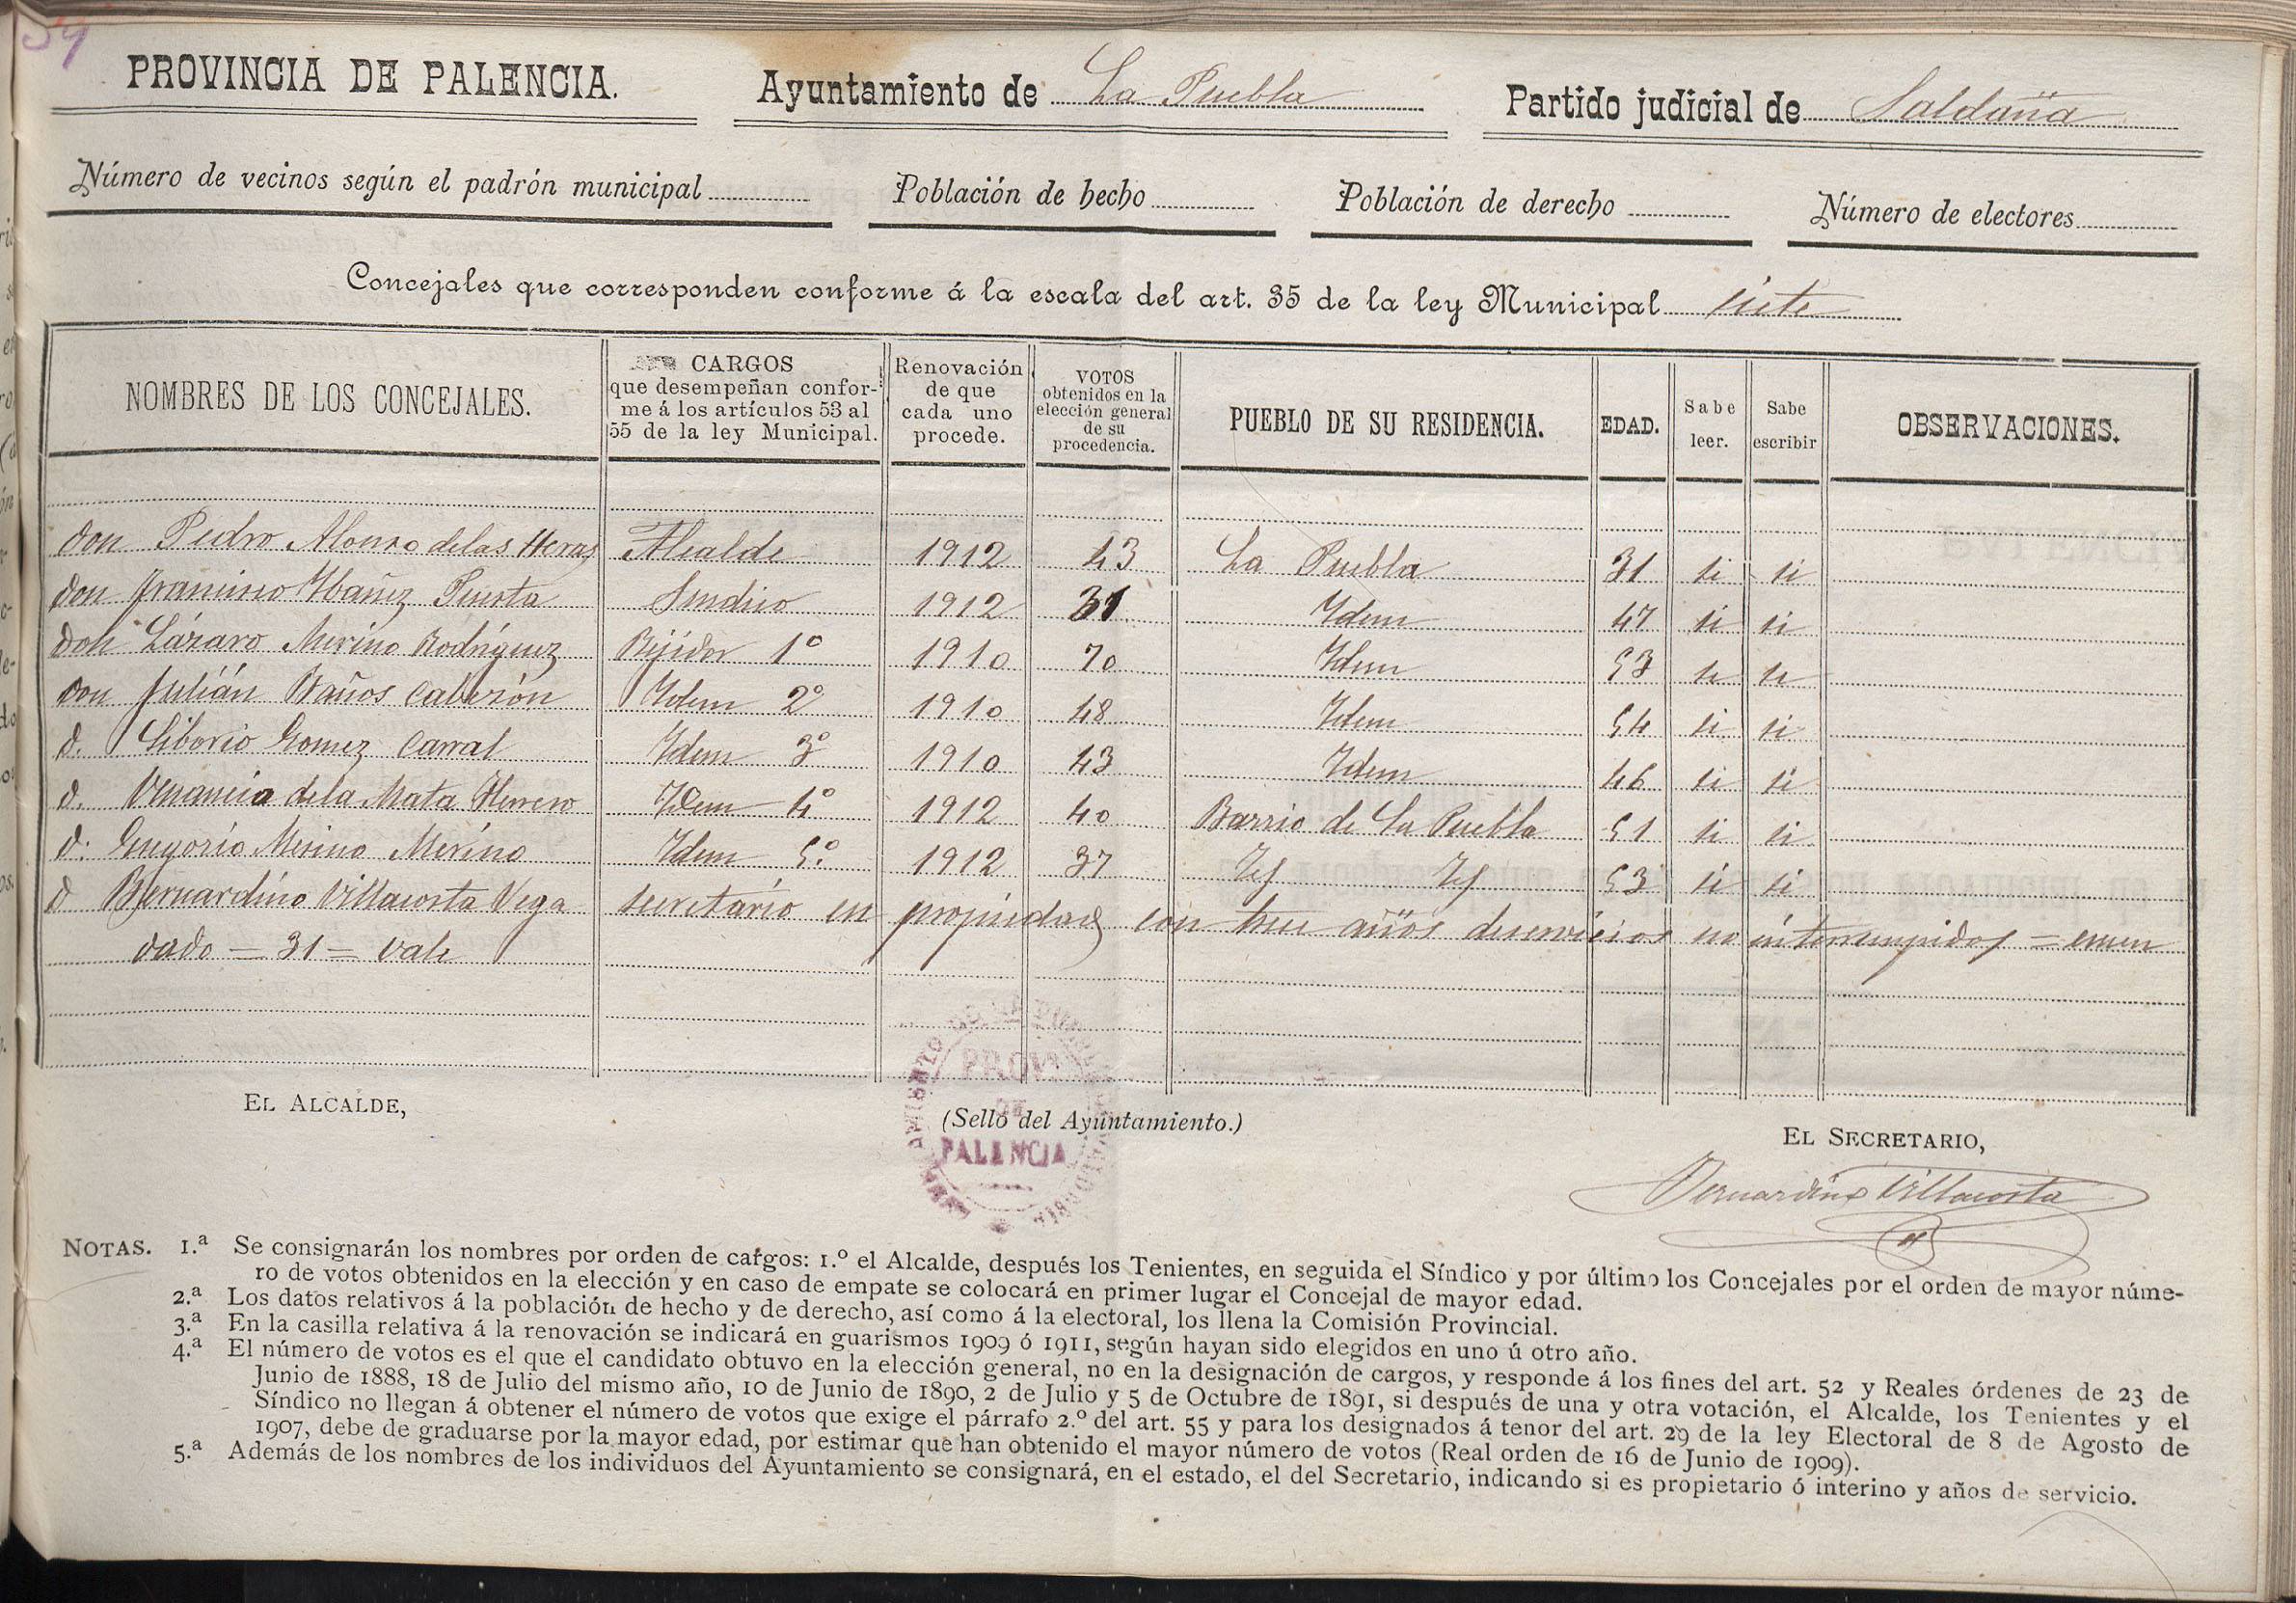 34
PROVINCIA DE PALENCIA. Ayuntamiento de La Puebla Partido judicial de Saldaña
Número de vecinos según el padrón municipal Población de hecho Población de derecho Número de electores
Concejales que corresponden conforme á la escala del art. 35 de la ley Municipal siete
NOMBRES DE LOS CONCEJALES. CARGOS que desempeñan conforme á los artículos 53 al 55 de la ley Municipal. Renovación de que cada uno procede. VOTOS obtenidos en la elección general de su procedencia. PUEBLO DE SU RESIDENCIA. EDAD. Sabe leer. Sabe escribir OBSERVACIONES.
Don Pedro Alonso de las Heras Alcalde 1912 43 La Puebla 31 si si
Don Francisco Ybañez Puerta Sindico 1912 31 Ydem 47 si si
Don Lázaro Merino Rodríguez Rejidor 1º 1910 70 Ydem 53 si si
Don Julián Baños Caberón Ydem 2º 1910 48 Ydem 54 si si
D. Liborio Gomez Carral Ydem 3º 1910 43 Ydem 46 si si
D. Venancio de la Mata Herrero Ydem 4º 1912 40 Barrio de La Puebla 51 si si
D. Gregorio Merino Merino Ydem 5º 1912 37 Id Id 53 si si
D Bernardino Villacorta Vega secretario en propiedad con trece años de servicios no interrumpidos = enmen
dado = 31 = vale
EL ALCALDE, (Sello del Ayuntamiento.) EL SECRETARIO,
PROVI
DE
PALENCIA
Bernardino Villacorta
NOTAS. 1.ª Se consignarán los nombres por orden de cargos: 1.º el Alcalde, después los Tenientes, en seguida el Síndico y por último los Concejales por el orden de mayor núme-
ro de votos obtenidos en la elección y en caso de empate se colocará en primer lugar el Concejal de mayor edad.
2.ª Los datos relativos á la población de hecho y de derecho, así como á la electoral, los llena la Comisión Provincial.
3.ª En la casilla relativa á la renovación se indicará en guarismos 1909 ó 1911, según hayan sido elegidos en uno ú otro año.
4.ª El número de votos es el que el candidato obtuvo en la elección general, no en la designación de cargos, y responde á los fines del art. 52 y Reales órdenes de 23 de
Junio de 1888, 18 de Julio del mismo año, 10 de Junio de 1890, 2 de Julio y 5 de Octubre de 1891, si después de una y otra votación, el Alcalde, los Tenientes y el
Síndico no llegan á obtener el número de votos que exige el párrafo 2.º del art. 55 y para los designados á tenor del art. 29 de la ley Electoral de 8 de Agosto de
1907, debe de graduarse por la mayor edad, por estimar que han obtenido el mayor número de votos (Real orden de 16 de Junio de 1909).
5.ª Además de los nombres de los individuos del Ayuntamiento se consignará, en el estado, el del Secretario, indicando si es propietario ó interino y años de servicio.